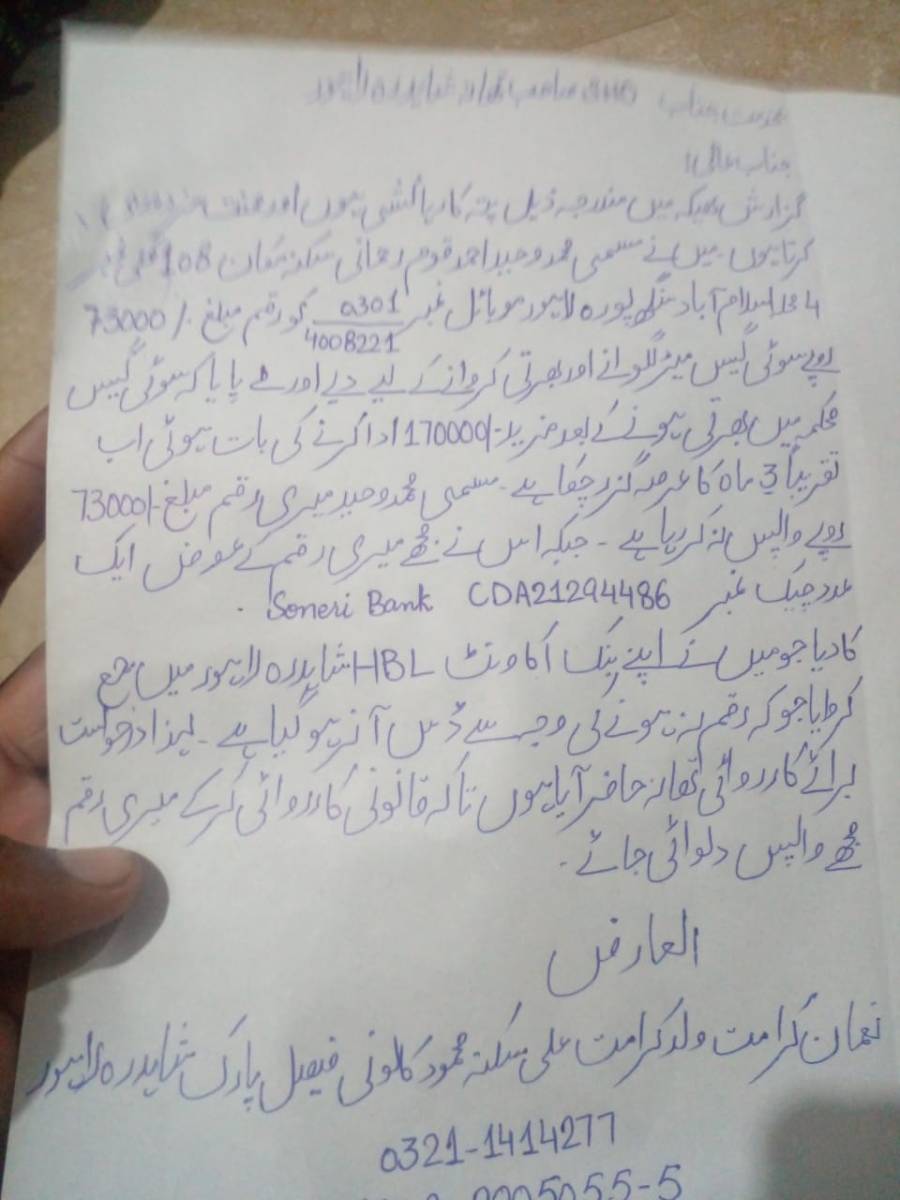 بخدمت جناب SHO صاحب تھانہ شاہدرہ لاہور
جناب عالی!
گزارش ہیکہ میں مندجہ ذیل پتہ کا رہائشی ہوں اور محنت
کرتا ہوں۔ میں نے مسمی محمد وحید احمد قوم رحمانی سکنہ مکان 108 گلی نمبر
34 اسلام آباد سنگھ پورہ لاہور موبائل نمبر 0301 4008221 کو رقم مبلغ /- 73000
روپے سوئی گیس میٹر لگوانے اور بھرتی کروانے کے لیے دیے اور طے پایا کہ سوئی گیس
محکمہ میں بھرتی ہونے کے بعد مزید -/170000 ادا کرنے کی بات ہوئی اب
تقریباً 3 ماہ کا عرصہ گزر چکا ہے۔ مسمی محمد وحید میری رقم مبلغ -/73000
روپے واپس نہ کر رہا ہے ۔ جبکہ اس نے مجھے میری رقم کے عوض ایک
عدد چیک نمبر Soneri Bank CDA21294486 .
کا دیا جو میں نے اپنے بنک اکاونٹ HBL شاہدرہ لاہور میں جمع
کروایا جو کہ رقم نہ ہونے کی وجہ سے ڈس آنر ہو گیا ہے ۔ لہذا درخواست
برائے کارروائی تھانہ حاضر آیا ہوں تاکہ قانونی کارروائی کر کے میری رقم
مجھے واپس دلوائی جائے ۔
العارض
نعمان کرامت ولد کرامت علی سکنہ محمود کالونی فیصل پارک شاہدرہ لاہور
0321-1414277